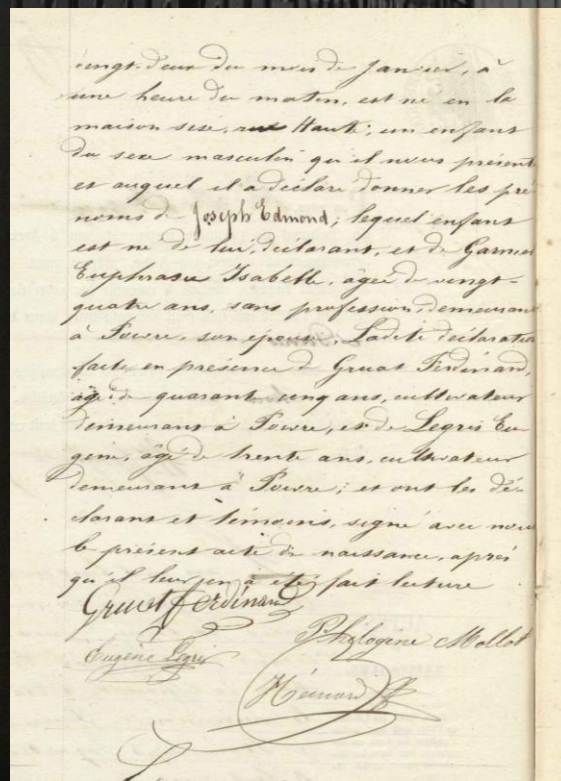 vingt-deux du mois de Janvier, à
une heure du matin, est né en la
maison sise, rue Haute; un enfant
du sexe masculin qu'il nous présente
et auquel il a déclaré donner les pré
noms de Joseph Edmond; lequel enfant
est né de lui, déclarant, et de Garnier
Euphrasie Isabelle, âgée de vingt-
quatre ans, sans profession, demeurant
à son épouse. Ladite déclaration
faite en présence de Gruat Ferdinand,
âgé de quarante cinq ans, cultivateur
demeurant à et de Legris Eu
gène, âgé de trente ans, cultivateur
demeurant à et ont les dé-
clarant et témoins, signé avec nous
le présent acte de naissance, après
qu'il leur en a été fait lecture
Gruat Ferdinand
Phylogène Mollot
Eugène Legris